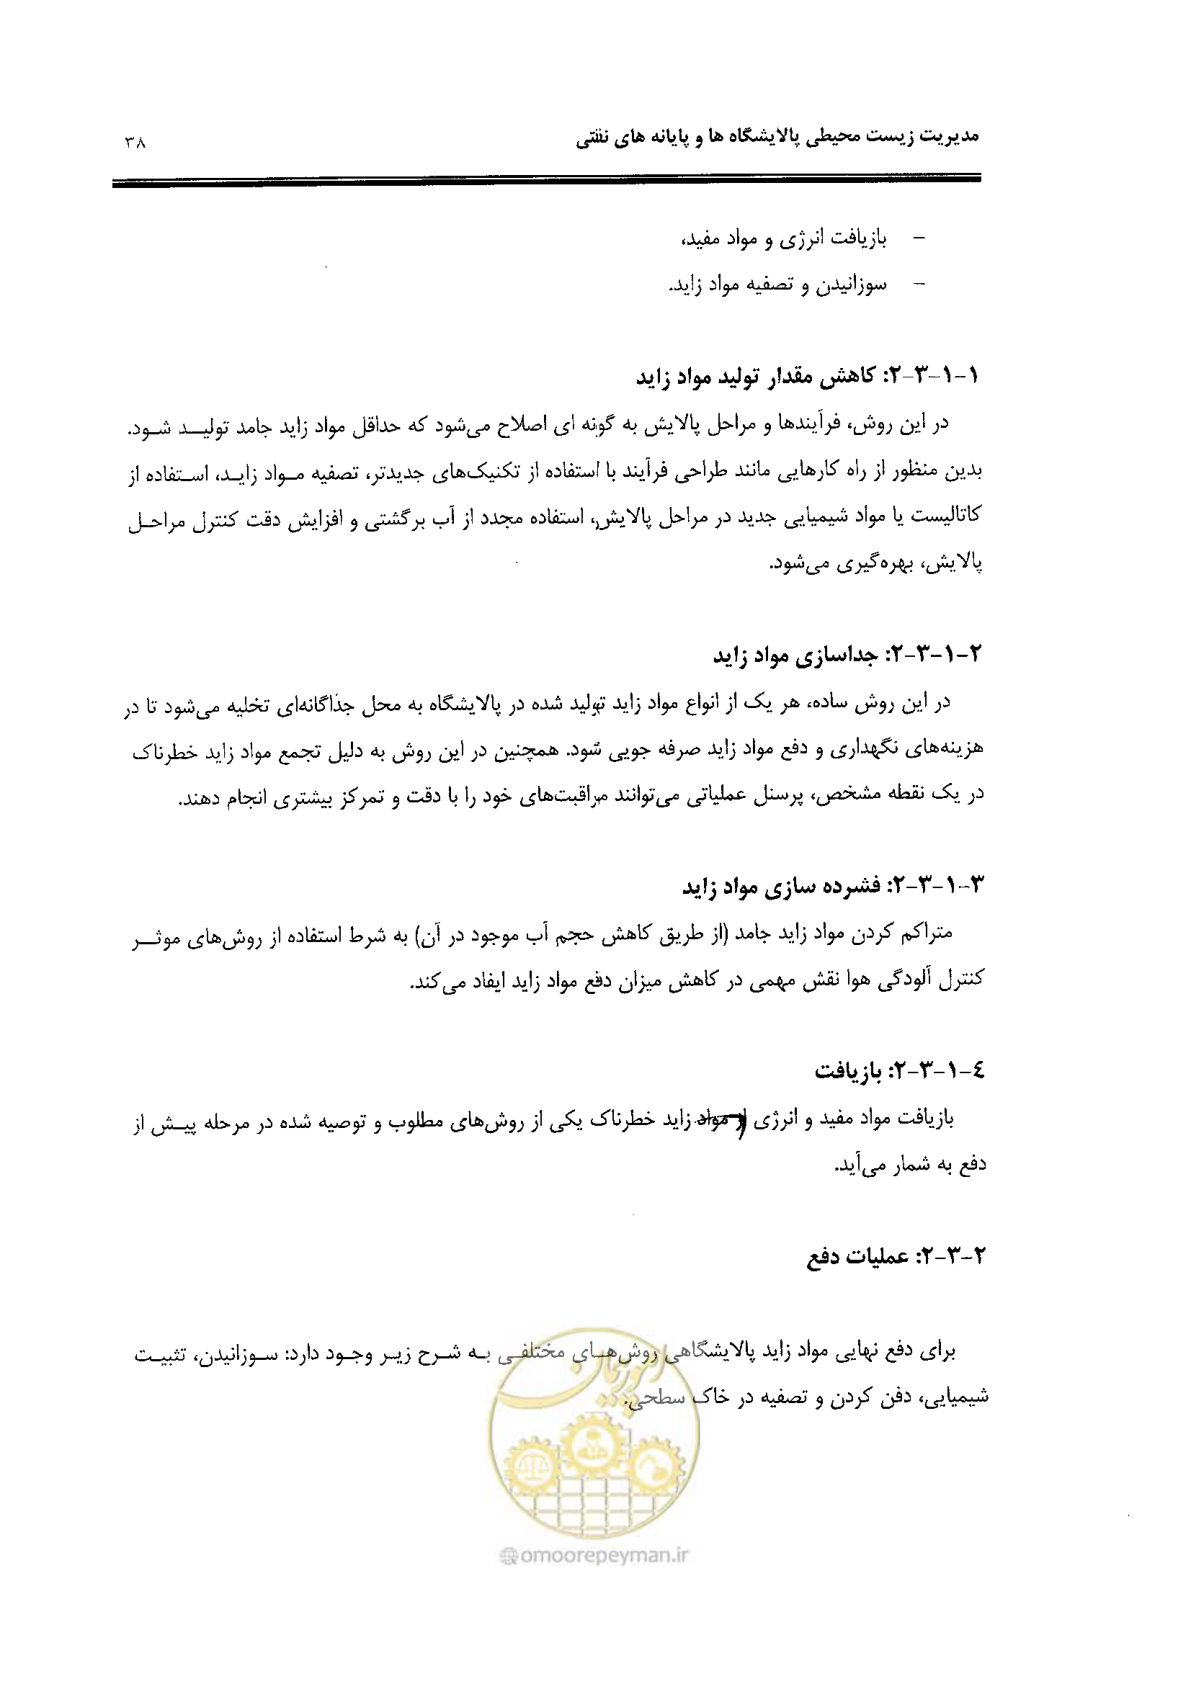 مدیریت زیست محیطی پالایشگاه ها و پایانه های نفتی
۳۸
– بازیافت انرژی و مواد مفید،
– سوزانیدن و تصفیه مواد زاید.
۲-۳-۱-۱: کاهش مقدار تولید مواد زاید
در این روش، فرآیندها و مراحل پالایش به گونه ای اصلاح می‌شود که حداقل مواد زاید جامد تولیـــد شــود.
بدین منظور از راه کارهایی مانند طراحی فرآیند با استفاده از تکنیک‌های جدیدتر، تصفیه مـواد زایـد، اسـتفاده از
کاتالیست یا مواد شیمیایی جدید در مراحل پالایش، استفاده مجدد از آب برگشتی و افزایش دقت کنترل مراحـل
پالایش، بهره‌گیری می‌شود.
۲-۳-۱-۲: جداسازی مواد زاید
در این روش ساده، هر یک از انواع مواد زاید تولید شده در پالایشگاه به محل جداگانه‌ای تخلیه می‌شود تا در
هزینه‌های نگهداری و دفع مواد زاید صرفه جویی شود. همچنین در این روش به دلیل تجمع مواد زاید خطرناک
در یک نقطه مشخص، پرسنل عملیاتی می‌توانند مراقبت‌های خود را با دقت و تمرکز بیشتری انجام دهند.
۲-۳-۱-۳: فشرده سازی مواد زاید
متراکم کردن مواد زاید جامد (از طریق کاهش حجم آب موجود در آن) به شرط استفاده از روش‌های موثــر
کنترل آلودگی هوا نقش مهمی در کاهش میزان دفع مواد زاید ایفاد می‌کند.
۲-۳-۱-۴: بازیافت
بازیافت مواد مفید و انرژی از مواد زاید خطرناک یکی از روش‌های مطلوب و توصیه شده در مرحله پیـش از
دفع به شمار می‌آید.
۲-۳-۲: عملیات دفع
برای دفع نهایی مواد زاید پالایشگاهی روش‌هـای مختلفـی بـه شـرح زیـر وجـود دارد: سـوزانیدن، تثبیـت
شیمیایی، دفن کردن و تصفیه در خاک سطحی.
امور پیمان
omoorepeyman.ir